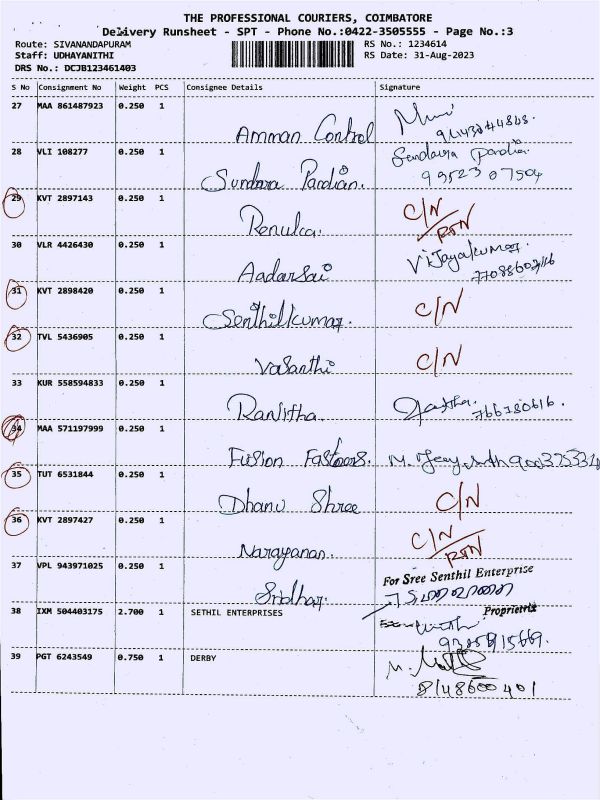 THE PROFESSIONAL COURIERS, COIMBATORE
Delivery Runsheet - SPT - Phone No.:0422-3505555 - Page No.:3
Route: SIVANANDAPURAM RS No.: 1234614
Staff: UDHAYANITHI RS Date: 31-Aug-2023
DRS No.: DCJB123461403
S No Consignment No Weight PCS Consignee Details Signature
27 MAA 861487923 0.250 1
Amman Control
28 VLI 108277 0.250 1 Sundara Pandian
Sundara Pandian. 99523 07504
29 KVT 2897143 0.250 1 C/N
Renuka. RTN
30 VLR 4426430 0.250 1 Vijayakumar
Aadarsai
31 KVT 2898420 0.250 1 C/N
Senthilkumar.
32 TVL 5436905 0.250 1 C/N
Vasanthi
33 KUR 558594833 0.250 1
Ranjitha. 766380616.
34 MAA 571197999 0.250 1
Fusion Fastners.
35 TUT 6531844 0.250 1 C/N
Dhanu Shree
36 KVT 2897427 0.250 1 C/N
Narayanan. RTN
37 VPL 943971025 0.250 1 For Sree Senthil Enterprise
Sridhar.
38 IXM 504403175 2.700 1 SETHIL ENTERPRISES Proprietrix
39 PGT 6243549 0.750 1 DERBY
8148600401